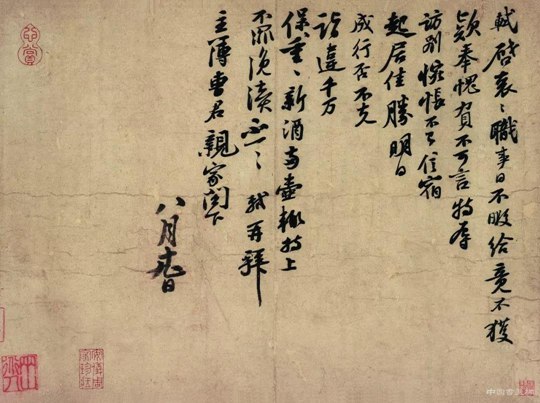 軾啓衰〻職事日不暇給竟不獲
欵奉愧負不可言特辱
訪別惋悵不已信宿
起居佳勝明日
成行否不克
詣違千万
保重〻新酒兩壺輒持上
不罪浼瀆不一〻 軾再拜
主簿曹君親家閣下
八月日